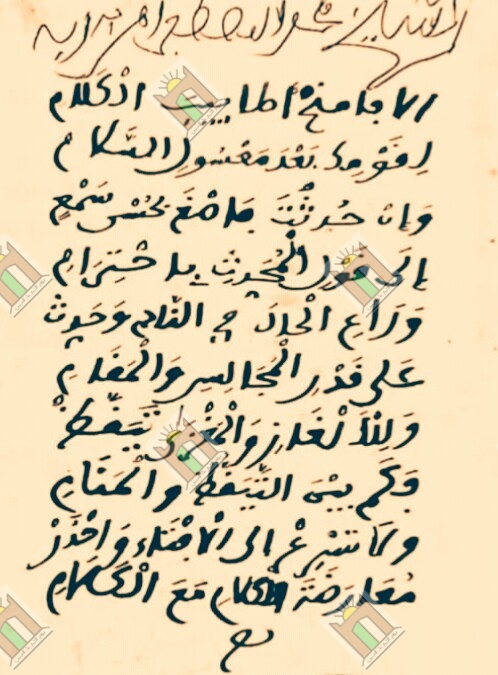 الا فامنح اطايب الكلام
لقومك بَعْدَ مَعْسُولِ السَّلام
وَإِنْ حُدِّثْتَ فاصْغَ بحُسْنِ سَمْعٍ
إِلَى قول الْمُحدِّثِ باحْتِرَامِ
وَرَاعِ الْحالَ في النَّادِ وَحَدِّثْ
عَلى قَدْرِ الْمَجَالسِ وَالْمَقَامِ
وَلِلْأَلْغَازِ وَالْمَغْزى تَيَقَّظْ
فَكَم بَيْنَ التَّيَقُّظِ والْمَنَامِ
ولَا تَسْرِعْ إِلى الْإِفْتَاءِ وَاحْذَرْ
مُعَارَضَةَ الْكَلامِ مَعَ الْكَلَامِ